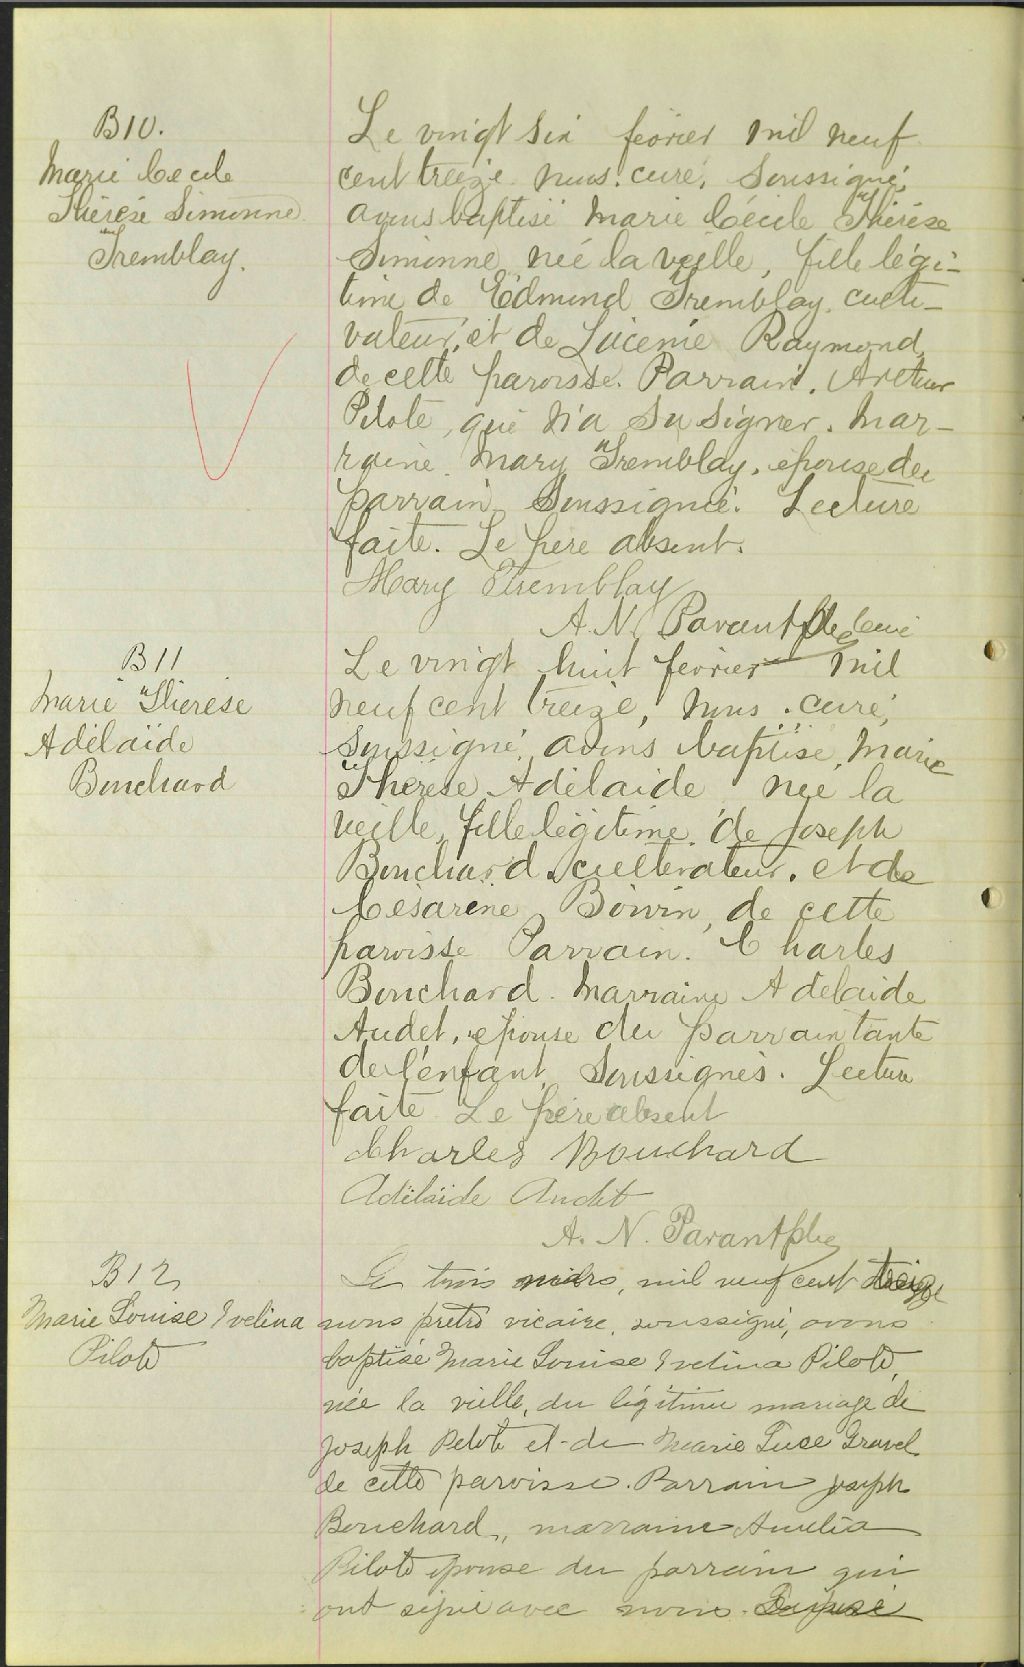 B10.
Marie Cecile
Thérèse Simonne
Tremblay.
Le vingt six février mil neuf
cent treize nous, curé, soussigné,
avons baptisé Marie Cécile Thérèse
Simonne, née la veille, fille légi-
time de Edmond Tremblay, culti-
vateur, et de Lucenie Raymond,
de cette paroisse. Parrain, Arthur
Pilote, qui n'a su signer. Mar-
raine. Mary Tremblay, épouse du
parrain, soussignée. Lecture
faite. Le père absent.
Mary Tremblay
A. N. Parant ptre curé
B11
Marie Thérèse
Adélaïde
Bouchard
Le vingt huit février mil
neuf cent treize, nous, curé,
soussigné, avons baptisé, Marie
Thérèse Adélaide née la
veille, fille légitime de Joseph
Bouchard, cultivateur, et de
Césarine Boivin, de cette
paroisse Parrain. Charles
Bouchard. Marraine Adélaide
Audet, épouse du parrain tante
de l'enfant, soussignés. Lecture
faite Le père absent
Charles Bouchard
Adélaïde Audet
A. N. Parant ptre
B12
Marie Louise Evelina
Pilote
Le trois mars, mil neuf cent treize
nous prêtre vicaire, soussigné, avons
baptisé Marie Louise Evelina Pilote,
née la veille, du légitime mariage de
Joseph Pilote et de Marie Luce Gravel
de cette paroisse. Parrain Joseph
Bouchard, marraine Amelia
Pilote épouse du parrain qui
ont signé avec nous.